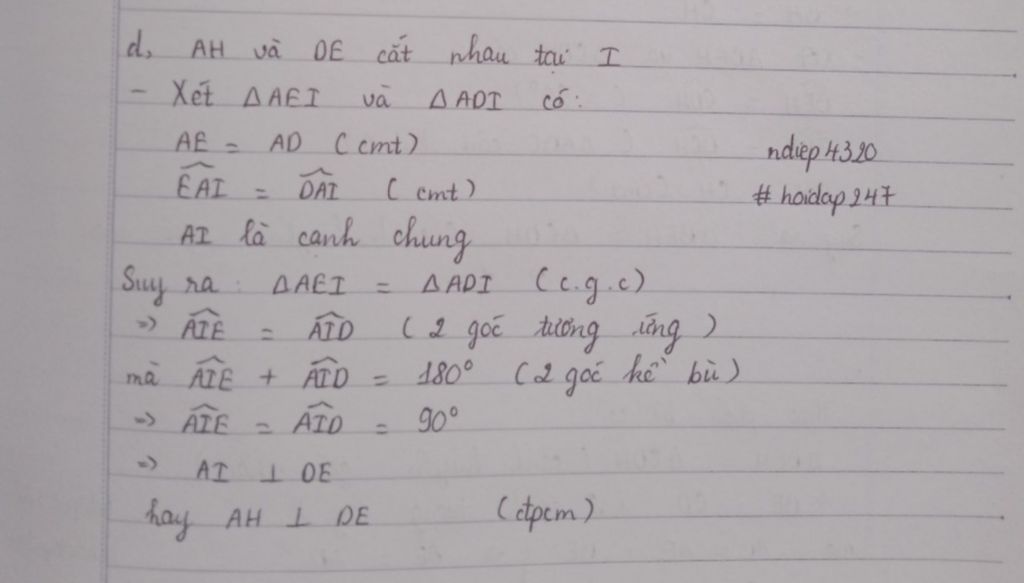 d, AH và DE cắt nhau tại I
- Xét ΔAEI và ΔADI có:
AE = AD (cmt)
ndiep4320
\widehat{EAI} = \widehat{DAI} (cmt)
#hoidap247
AI là cạnh chung
Suy ra: ΔAEI = ΔADI (c.g.c)
=> \widehat{AIE} = \widehat{AID} (2 góc tương ứng)
mà \widehat{AIE} + \widehat{AID} = 180° (2 góc kề bù)
=> \widehat{AIE} = \widehat{AID} = 90°
=> AI ⊥ DE
hay AH ⊥ DE (đpcm)